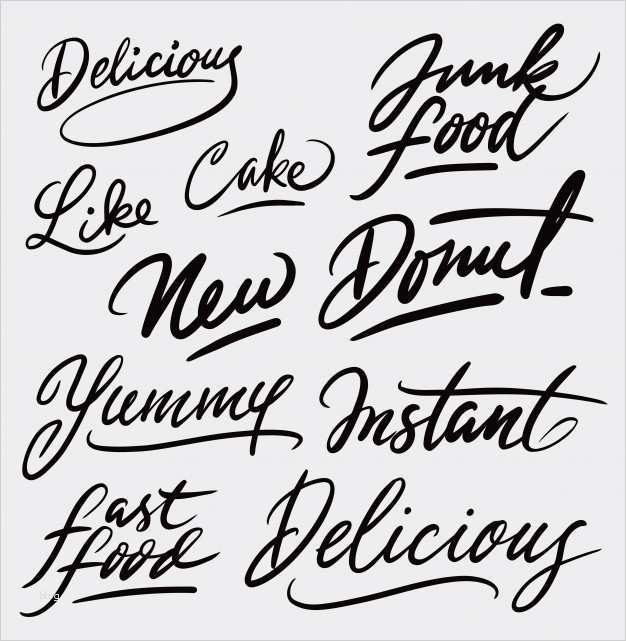 Delicious
Junk
food
Cake
Like
New
Donut
Yummy
Instant
fast
food
Delicious